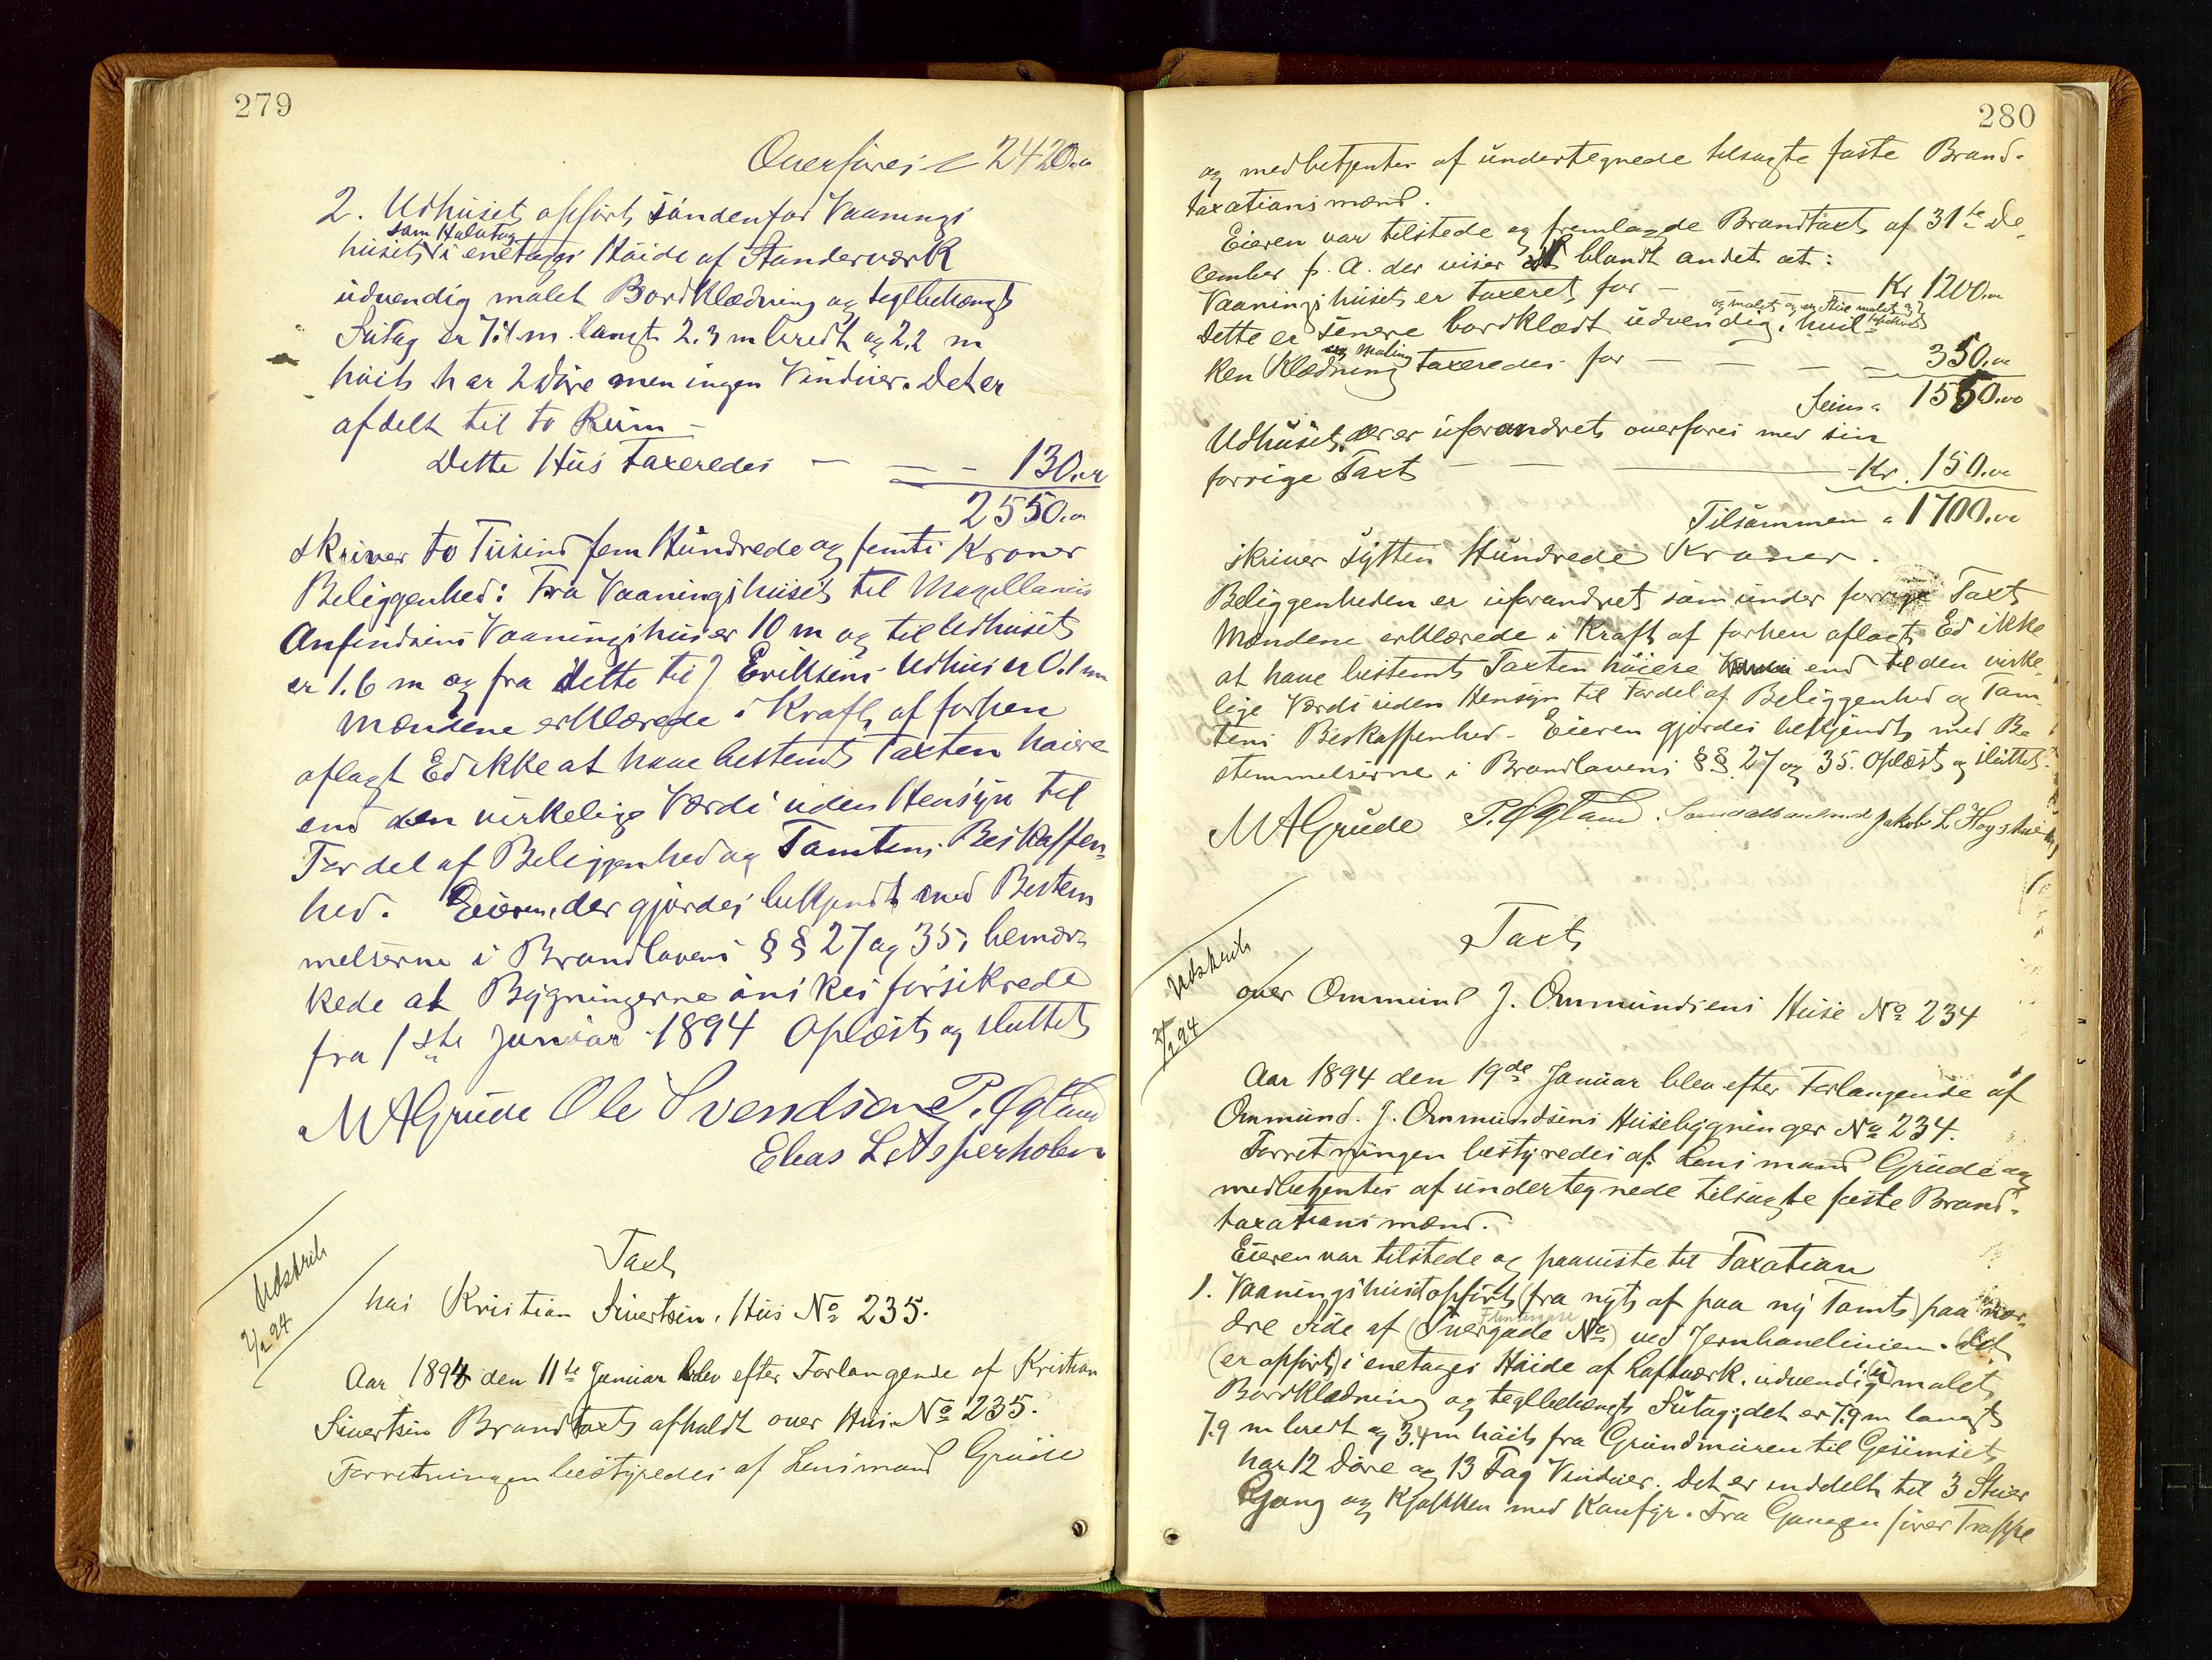 279
Overføres 2420.00
2. Udhuset opført søndenfor Vaanings
som Halvtag
huset i enetages Høide af Standerværk
udvendig malet Bordklædning og teglbehængt
Sutag er 7.4 m langt 2.3 m bredt og 2.2 m
høit har 2 Døre men ingen Vinduer. Det er
afdelt til to Rum –
Dette Hus taxeredes — — – 130.00
2550.00
skriver to Tusind fem Hundrede og femti Kroner
Beliggenhed: Fra Vaaningshuset til Magellanus
Anfindsens Vaaningshus er 10 m og til Udhuset
er 1.6 m og fra dette til J Eriksens Udhus er 0.1 m
Mændene erklærede i Kraft af forhen
aflagt Ed ikke at have bestemt Taxten høiere
end den virkelige Værdi uden Hensyn til
Fordel af Beliggenhed og Tomtens Beskaffen-
hed. Eieren, der gjordes bekjendt med Bestem
melserne i Brandlovens §§ 27 og 35, bemær-
kede at Bygningerne ønskes forsikrede
fra 1ste Januar 1894 Oplæst og sluttet
M A Grude Ole Svendsen P. Øgland
Elias L Asperholen
Udskrift
2/2 94
Taxt
hos Kristian Sivertsen, Hus No 235.
Aar 1894 den 11te Januar blev efter Forlangende af Kristian
Sivertsen Brandtaxt afholdt over Hus No 235.
Forretningen bestyredes af Lensmand Grude
280
og medbetjentes af undertegnede tilsagte faste Brand-
taxationsmænd.
Eieren var tilstede og fremlagde Brandtaxt af 31te De-
cember f. A. der viser blandt andet at:
Vaaningshuset er taxeret for — Kr 1200.00
og malet og en Stue malet og
Dette er senere bordklædt udvendig, hvil-
og Maling
ken Klædning taxeredes for — — — — 350.00
Sum " 1550.00
Udhuset, der er uforandret overføres med sin
forrige Taxt — — — Kr. 150.00
Tilsammen " 1700.00
skriver sytten Hundrede Kroner.
Beliggenheden er uforandret som under forrige Taxt
Mændene erklærede i Kraft af forhen aflagt Ed ikke
at have bestemt Taxten høiere end til den virke-
lige Værdi uden Hensyn til Fordel af Beliggenhed og Tom-
tens Beskaffenhed – Eieren gjordes bekjendt med Be
stemmelserne i Brandlovens §§ 27 og 35. Oplæst og sluttet.
M A Grude P. Øgland. Jakob L Hogstad
Udskrift
2/2 94
Taxt
over Ommund J. Ommundsens Huse No 234
Aar 1894 den 19de Januar blev efter Forlangende af
Ommund. J. Ommundsens Husebygninger No 234.
Forretningen bestyredes af Lensmand Grude og
medbetjentes af undertegnede tilsagte faste Brand-
taxationsmænd.
Eieren var tilstede og paaviste til Taxation
1. Vaaningshuset opført (fra nyt af paa ny Tomt) paa nor-
dre Side af (Tvergade No) ved Jernbanelinien. Det
(er opført) i enetages Høide af Laftværk, udvendig malet
Bordklædning og teglbehængt Sutag; det er 7.9 m langt
7.9 m bredt og 3.4 m høit fra Grundmuren til Gesimset
har 12 Døre og 13 Fag Vinduer. Det er inddelt til 3 Stuer
Gang og Kjøkken med Komfyr. Fra Gangen fører Trappe